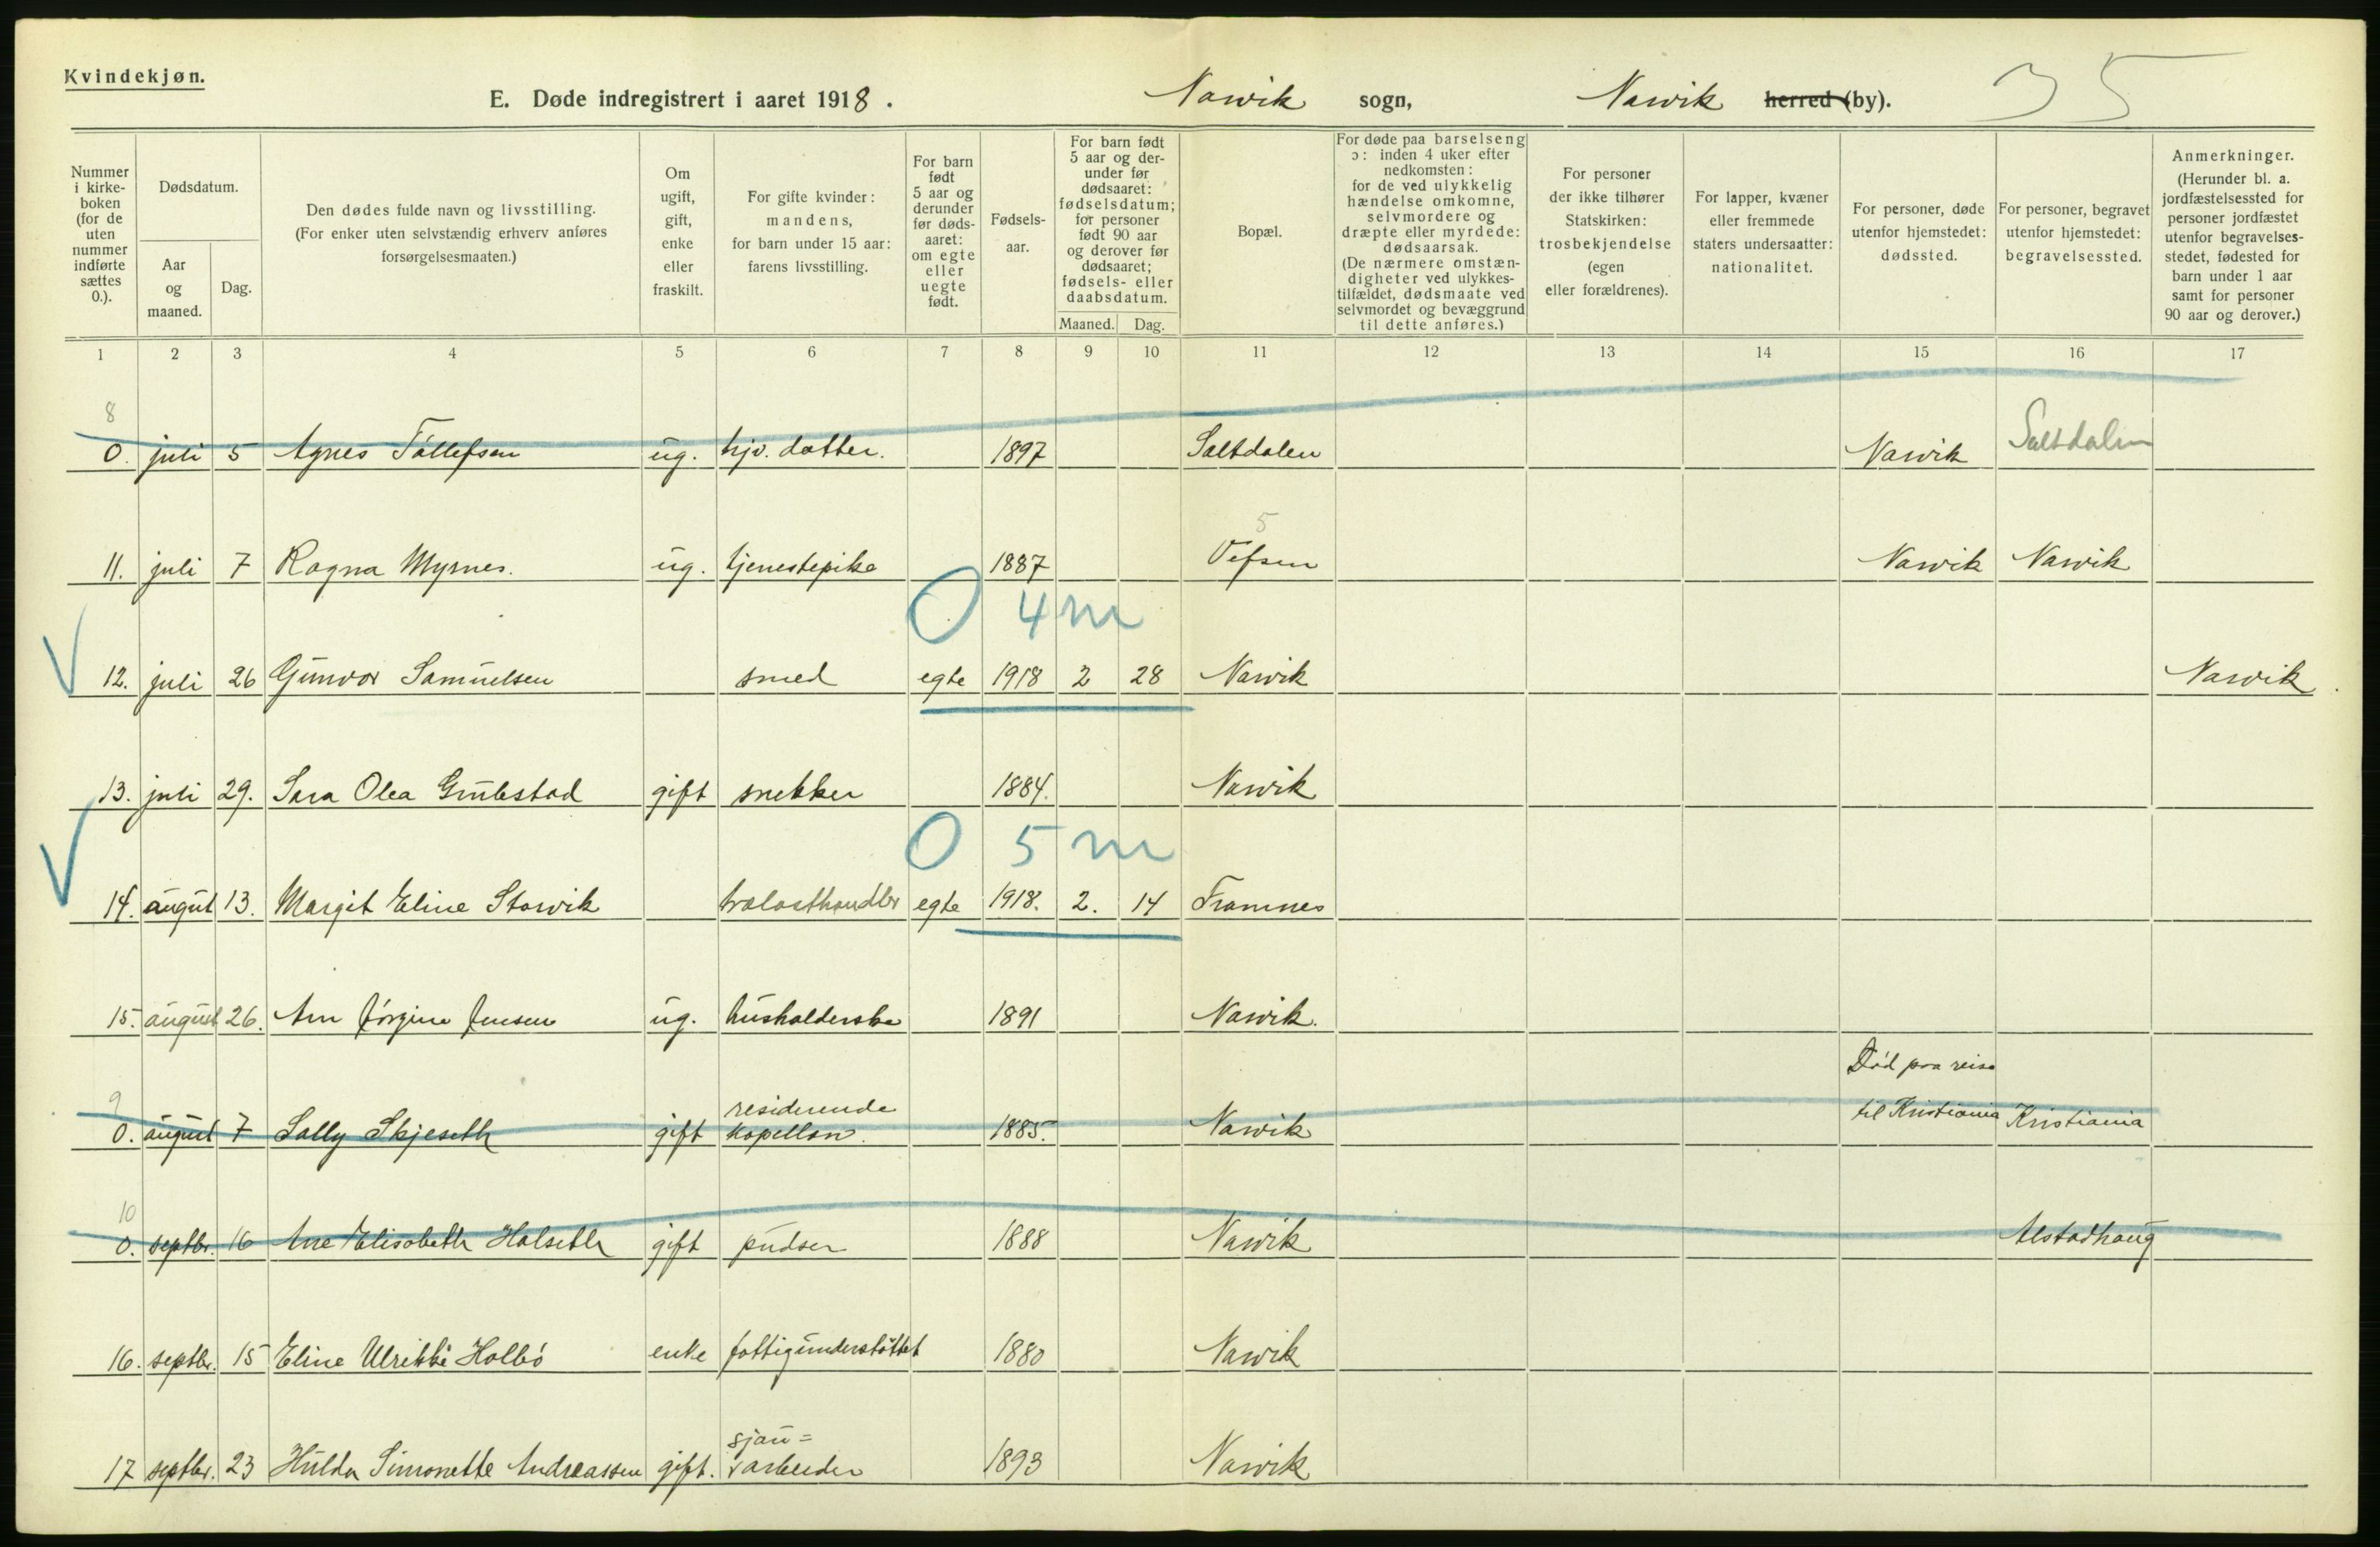 Kvindekjøn.
E. Døde indregistrert i aaret 1918. Narvik sogn, Narvik herred (by). 35
Nummer i kirkeboken (for de uten nummer indførte sættes 0.).
Dødsdatum.
Aar og maaned.
Dag.
Den dødes fulde navn og livsstilling.
(For enker uten selvstændig erhverv anføres forsørgelsesmaaten.)
Om ugift, gift, enke eller fraskilt.
For gifte kvinder: mandens, for barn under 15 aar: farens livsstilling.
For barn født 5 aar og derunder før dødsaaret: om egte eller uegte født.
Fødselsaar.
For barn født 5 aar og derunder før dødsaaret: fødselsdatum; for personer født 90 aar og derover før dødsaaret; fødsels- eller daabsdatum.
Maaned. Dag.
Bopæl.
For døde paa barselseng ɔ: inden 4 uker efter nedkomsten: for de ved ulykkelig hændelse omkomne, selvmordere og dræpte eller myrdede: dødsaarsak. (De nærmere omstændigheter ved ulykkestilfældet, dødsmaate ved selvmordet og bevæggrund til dette anføres.)
For personer der ikke tilhører Statskirken: trosbekjendelse (egen eller forældrenes).
For lapper, kvæner eller fremmede staters undersaatter: nationalitet.
For personer, døde utenfor hjemstedet: dødssted.
For personer, begravet utenfor hjemstedet: begravelsessted.
Anmerkninger. (Herunder bl. a. jordfæstelsessted for personer jordfæstet utenfor begravelsesstedet, fødested for barn under 1 aar samt for personer 90 aar og derover.)
1 2 3 4 5 6 7 8 9 10 11 12 13 14 15 16 17
8
0. juli 5 Agnes Tollefsen ug. hjv. datter. 1897 Saltdalen Narvik Saltdalen
5
11. juli 7 Ragna Myrnes. ug. tjenestepike 1887 Vefsen Narvik Narvik
0 4 m
12. juli 26 Gunvor Samuelsen smed egte 1918 2 28 Narvik Narvik
13. juli 29. Sara Olea Grubestad gift snekker 1884. Narvik
0 5 m
14. august 13. Margit Eline Storvik trælasthandler egte 1918. 2. 14 Framnes
15. august 26. Ann Jørgine Jensen ug. husholderske 1891 Narvik.
9
0. august 7 Sally Skjeseth gift residerende kapellan. 1885. Narvik Død paa reise til Kristiania Kristiania
10
0. septbr. 16 Ane Elisabeth Halseth gift pudser 1888 Narvik Alstadhaug
16. septbr. 15 Eline Ulrikke Holbø enke fattigunderstøttet 1880 Narvik
17 septbr. 23 Hulda Simonette Andreassen gift. sjau=arbeider 1893 Narvik